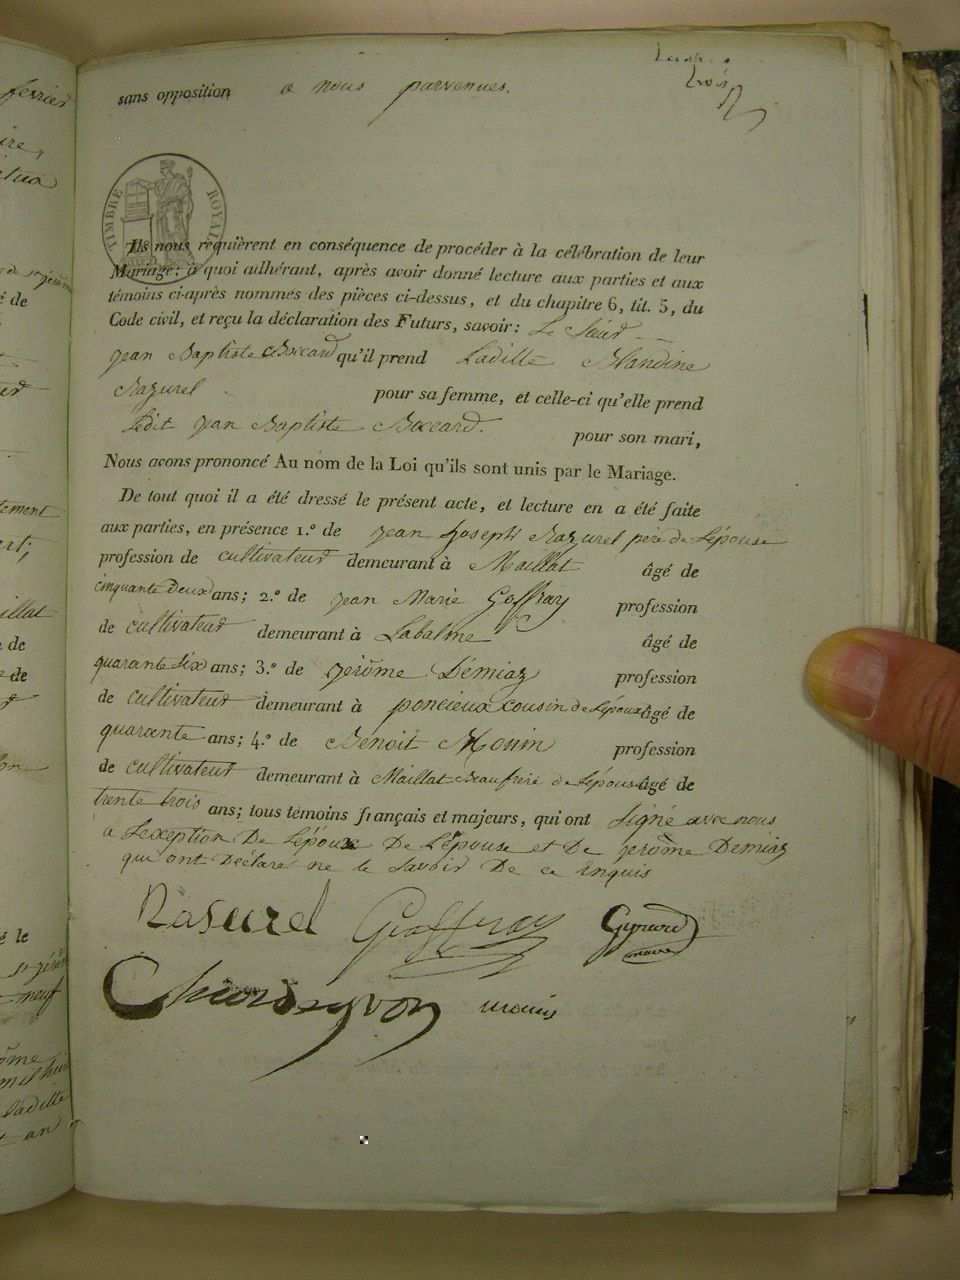 trois
sans opposition a nous parvenues.
TIMBRE ROYAL
Ils nous requièrent en conséquence de procéder à la célébration de leur
Mariage: à quoi adhérant, après avoir donné lecture aux parties et aux
témoins ci-après nommés des pièces ci-dessus, et du chapitre 6, tit. 5, du
Code civil, et reçu la déclaration des Futurs, savoir: Le Sieur
jean Baptiste Boccard qu'il prend Ladille Blandine
Razurel pour sa femme, et celle-ci qu'elle prend
Ledit jean Baptiste Boccard. pour son mari,
Nous avons prononcé Au nom de la Loi qu'ils sont unis par le Mariage.
De tout quoi il a été dressé le présent acte, et lecture en a été faite
aux parties, en présence 1.º de jean joseph Razurel père de Lépouse
profession de cultivateur demeurant à Maillat âgé de
cinquante deux ans; 2.º de jean Marie Goffray profession
de cultivateur demeurant à Labalme âgé de
quarante six ans; 3.º de jerôme Démiaz profession
de cultivateur demeurant à poncieux cousin de Lépoux âgé de
quarante ans; 4.º de Benoit Monin profession
de cultivateur demeurant à Maillat Beaufrere de Lépouse âgé de
trente trois ans; tous témoins français et majeurs, qui ont signé avec nous
a Lexception De Lépoux De Lépouse et De jerôme Demiaz
qui ont Déclaré ne le savoir De ce inquis
Rasurel Geoffray Girard
maire
monin